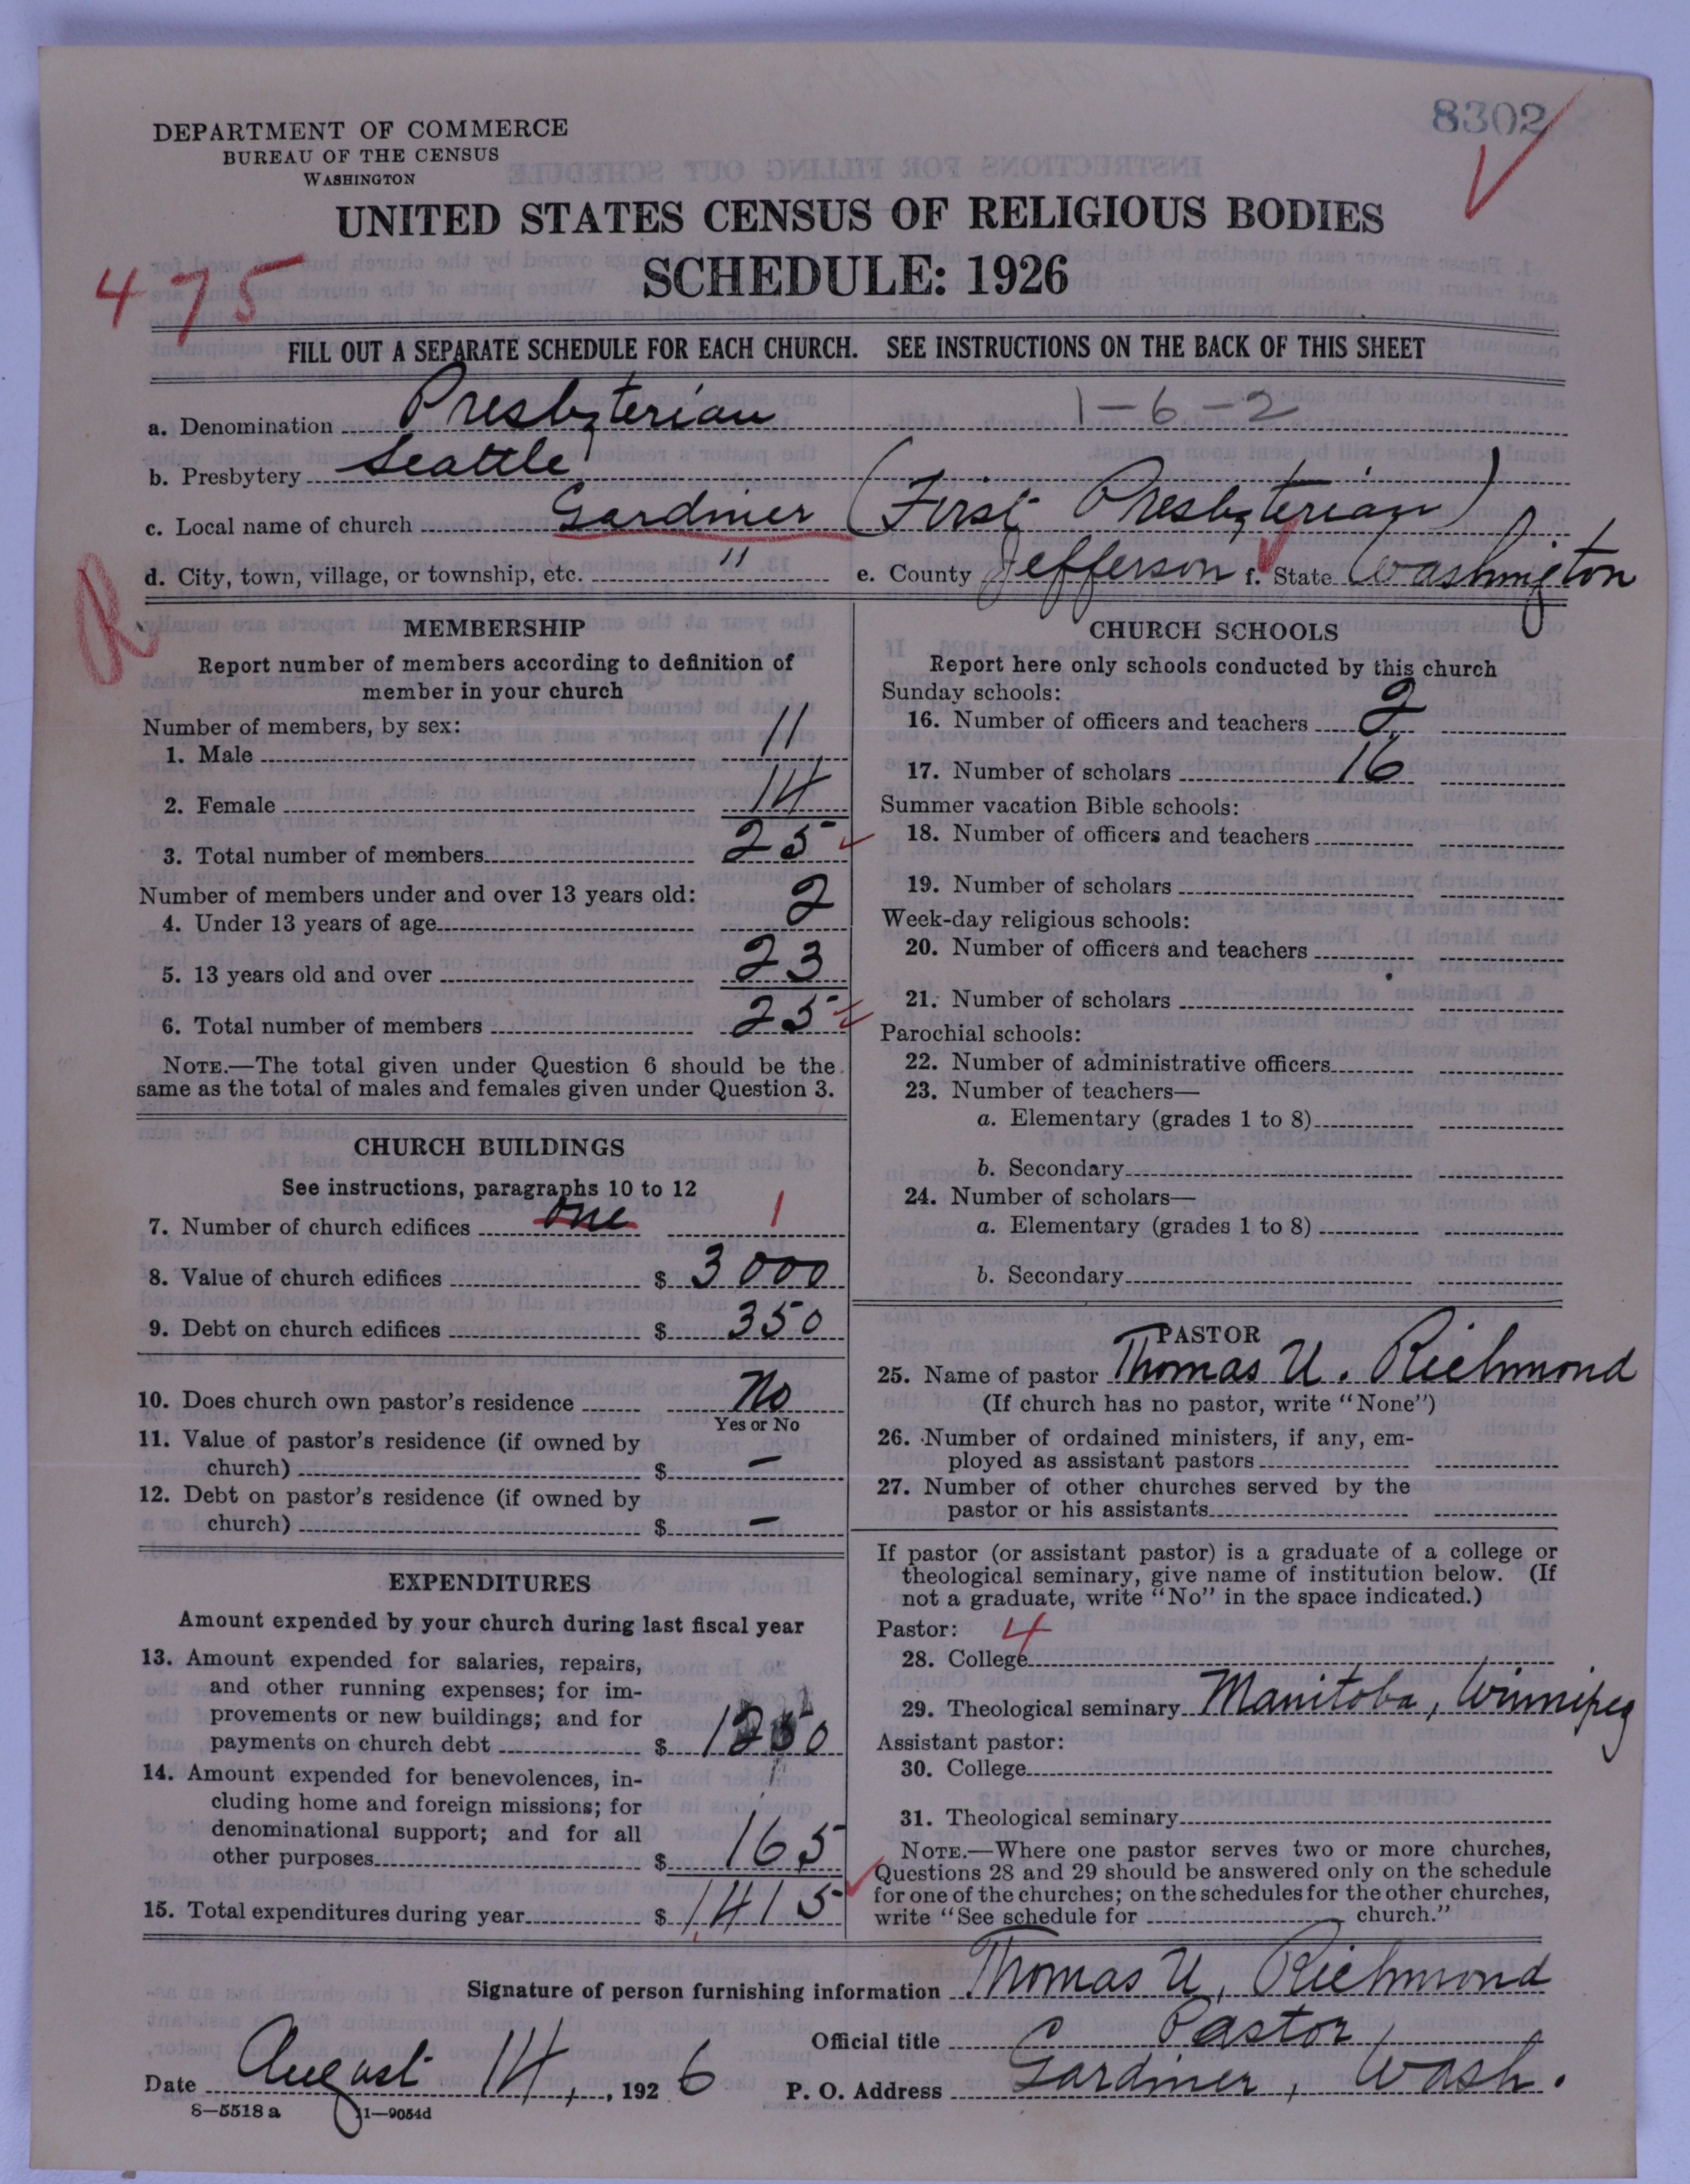 8302
DEPARTMENT OF COMMERCE
BUREAU OF THE CENSUS
WASHINGTON
UNITED STATES CENSUS OF RELIGIOUS BODIES
475
SCHEDULE: 1926
FILL OUT A SEPARATE SCHEDULE FOR EACH CHURCH. SEE INSTRUCTIONS ON THE BACK OF THIS SHEET
a. Denomination Presbyterian 1-6-2
b. Presbytery Seattle
c. Local name of church Gardiner (First Presbyterian)
d. City, town, village, or township, etc. " e. County Jefferson f. State Washington
R
MEMBERSHIP
Report number of members according to definition of
member in your church
Number of members, by sex:
1. Male 11
2. Female 14
3. Total number of members 25
Number of members under and over 13 years old:
4. Under 13 years of age 2
5. 13 years old and over 23
6. Total number of members 25
NOTE.—The total given under Question 6 should be the
same as the total of males and females given under Question 3.
CHURCH BUILDINGS
See instructions, paragraphs 10 to 12
7. Number of church edifices one 1
8. Value of church edifices $ 3000
9. Debt on church edifices $ 350
10. Does church own pastor's residence No
Yes or No
11. Value of pastor's residence (if owned by
church) $ —
12. Debt on pastor's residence (if owned by
church) $ —
EXPENDITURES
Amount expended by your church during last fiscal year
13. Amount expended for salaries, repairs,
and other running expenses; for im-
provements or new buildings; and for
payments on church debt $ 1250
14. Amount expended for benevolences, in-
cluding home and foreign missions; for
denominational support; and for all
other purposes $ 165
15. Total expenditures during year $ 1415
CHURCH SCHOOLS
Report here only schools conducted by this church
Sunday schools:
16. Number of officers and teachers 2
17. Number of scholars 16
Summer vacation Bible schools:
18. Number of officers and teachers
19. Number of scholars
Week-day religious schools:
20. Number of officers and teachers
21. Number of scholars
Parochial schools:
22. Number of administrative officers
23. Number of teachers—
a. Elementary (grades 1 to 8)
b. Secondary
24. Number of scholars—
a. Elementary (grades 1 to 8)
b. Secondary
PASTOR
25. Name of pastor Thomas U. Richmond
(If church has no pastor, write "None")
26. Number of ordained ministers, if any, em-
ployed as assistant pastors
27. Number of other churches served by the
pastor or his assistants
If pastor (or assistant pastor) is a graduate of a college or
theological seminary, give name of institution below. (If
not a graduate, write "No" in the space indicated.)
Pastor: 4
28. College
29. Theological seminary Manitoba, Winnipeg
Assistant pastor:
30. College
31. Theological seminary
NOTE.—Where one pastor serves two or more churches,
Questions 28 and 29 should be answered only on the schedule
for one of the churches; on the schedules for the other churches,
write "See schedule for church."
Signature of person furnishing information Thomas U. Richmond
Official title Pastor
Date August 14, 1926 P. O. Address Gardiner, Wash.
8—5518 a 11—9054d